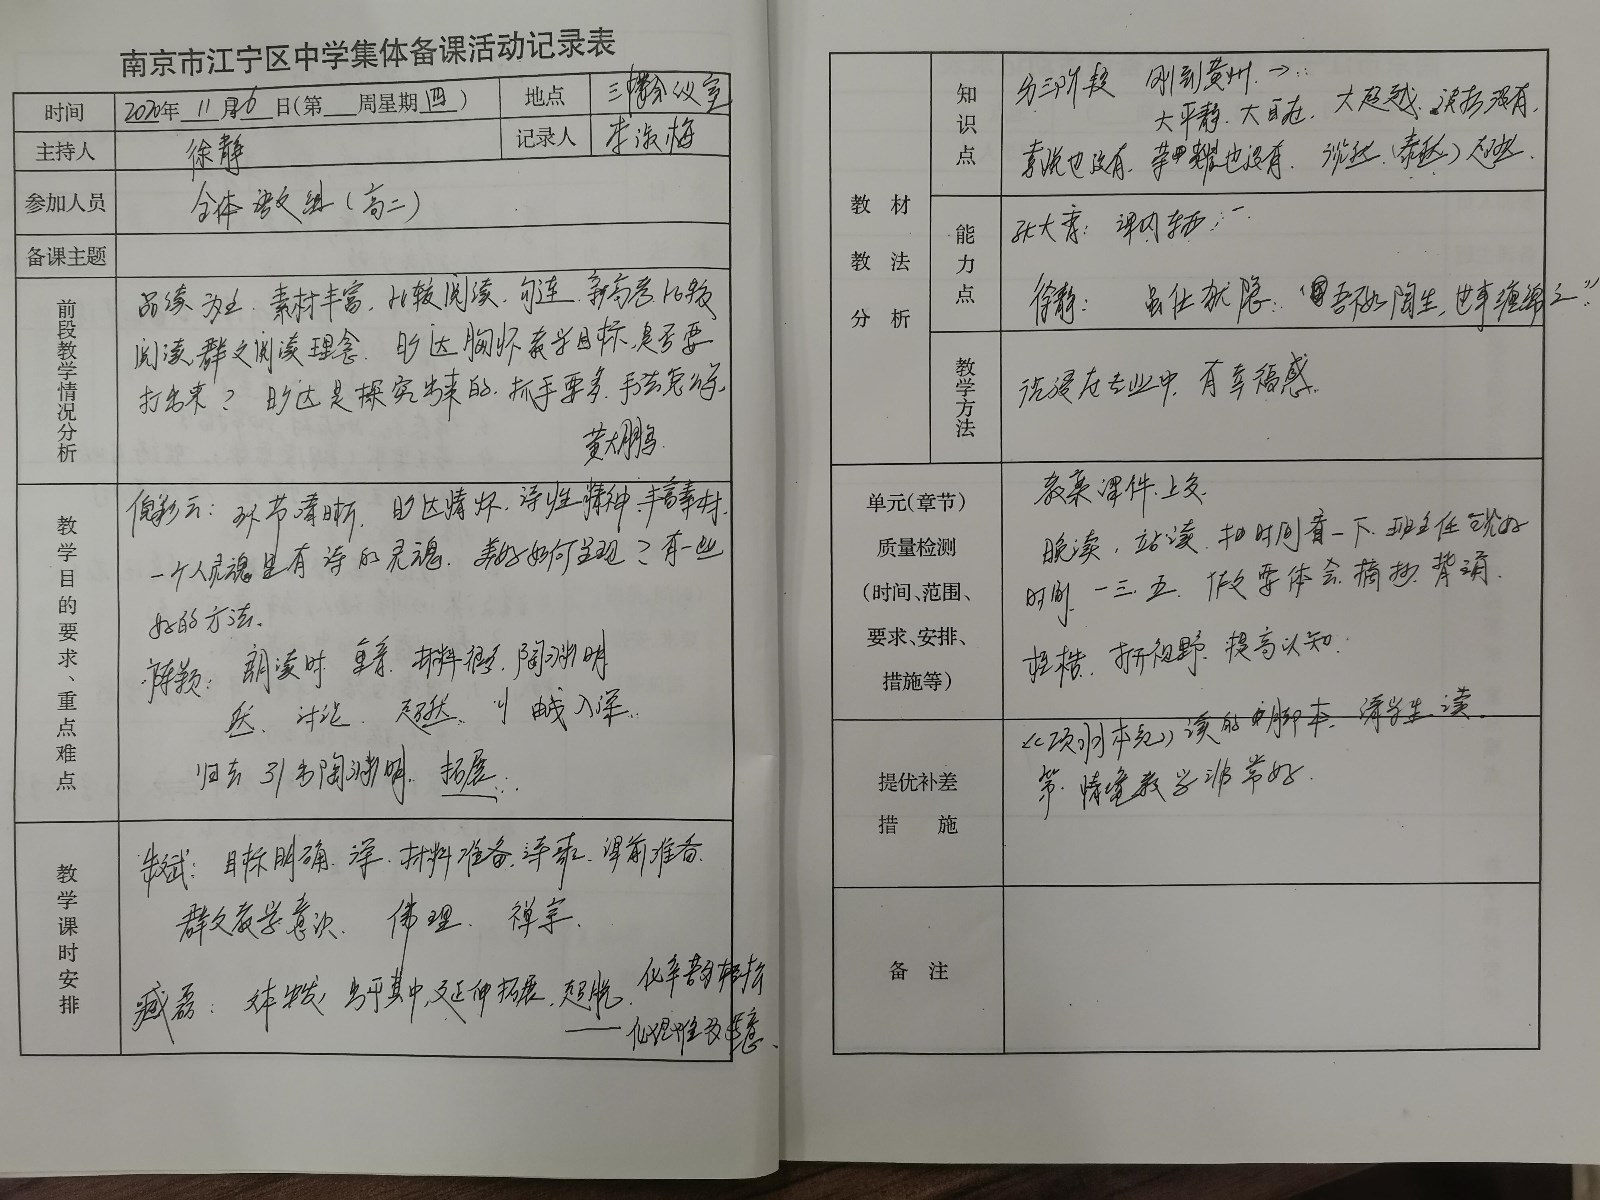 南京市江宁区中学集体备课活动记录表
时间 2020年 11月6日(第 周星期四) 地点 三楼会议室
主持人 徐静 记录人 李淑梅
参加人员 全体语文组(高二)
备课主题
前段教学情况分析
品读为主. 素材丰富, 比较阅读. 勾连. 新高考比较
阅读, 群文阅读理念. 旷达胸怀教学目标, 是否要
打出来? 旷达是探究出来的. 抓手要多. 手法怎么写.
黄大鹏.
教学目的要求、重点难点
倪彩云: 环节清晰. 旷达情怀. 诗性精神. 丰富素材.
一个人灵魂是有诗的灵魂. 美好如何呈现? 有一些
好的方法.
陈颖: 朗读时 重音. 材料很多. 陶渊明
讨论. 超然. 由浅入深.
归去 引出陶渊明. 拓展.
教学课时安排
朱斌: 目标明确. 深. 材料准备. 课前准备.
群文教学意识. 佛理. 禅宗.
臧磊: 文本生发, 出乎其中, 延伸拓展. 超脱.
教材教法分析
知识点
分三阶段 刚到黄州. →:
大平静. 大自在. 大超越. 没有.
喜悦也没有. 荣耀也没有.
能力点
张大春: 课内东西:
徐静: 虽仕犹隐. “吾不如陶生, 世事缠绵之”
教学方法
沉浸在专业中, 有幸福感.
单元(章节)
质量检测
(时间、范围、
要求、安排、
措施等)
教案课件上交.
晚读, 站读. 扣时间看一下. 班主任
时间. 一三.五. 作文要体会. 摘抄. 背诵.
打开视野. 提高认知.
提优补差
措 施
《项羽本纪》读的脚本. 请学生读.
情境教学非常好.
备 注